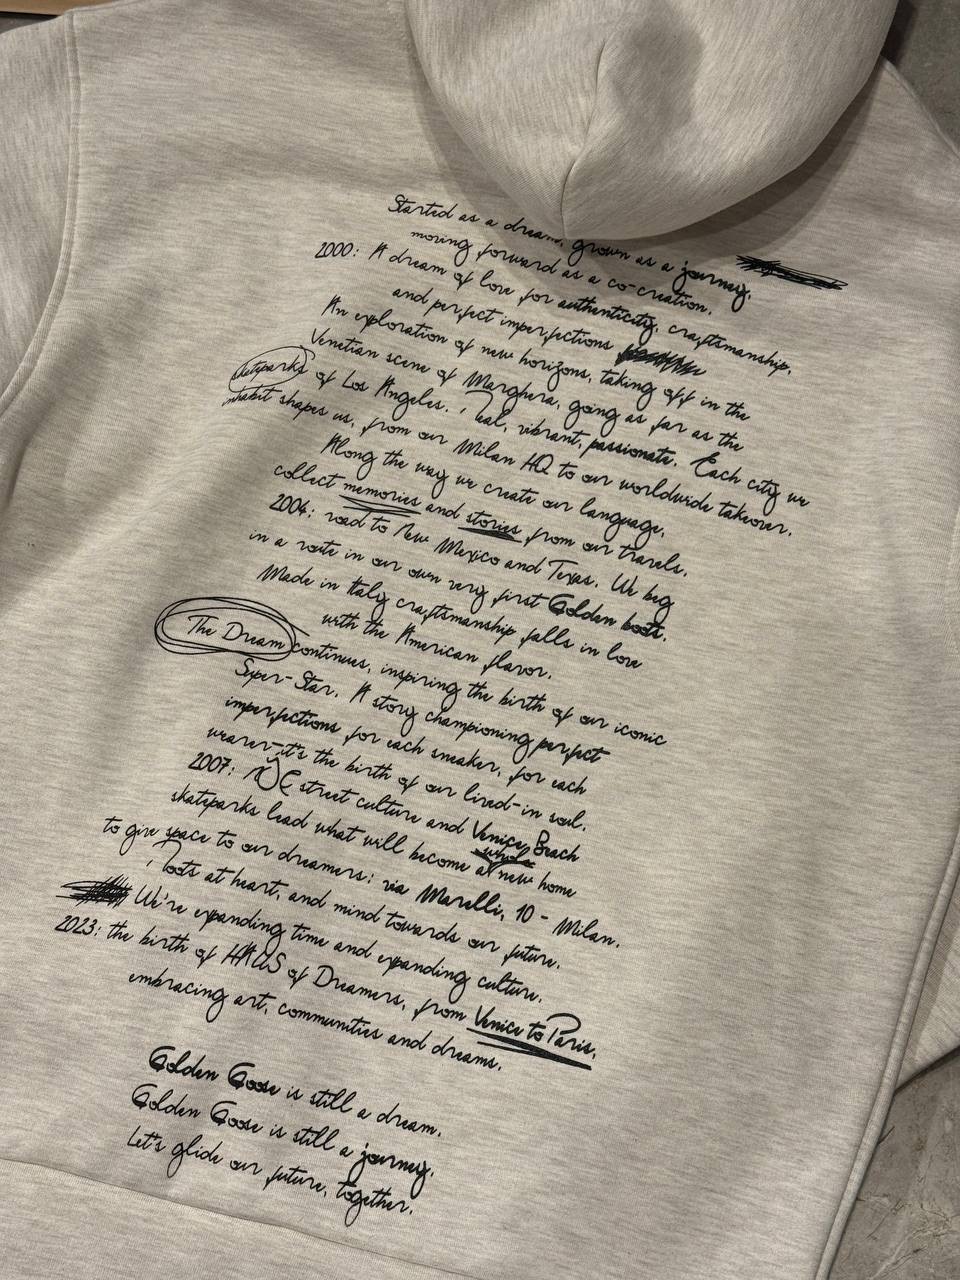 Started as a dream, grown as a journey,
moving forward as a co-creation.
2000: A dream of love for authenticity, craftsmanship,
and perfect imperfections
An exploration of new horizons, taking off in the
Venetian scene of Marghera, going as far as the
skateparks of Los Angeles. Real, vibrant, passionate. Each city we
inhabit shapes us, from our Milan HQ to our worldwide takeover.
Along the way we create our language,
collect memories and stories from our travels.
2004: road to New Mexico and Texas. We beg
in a route in our own very first Golden boots.
Made in Italy craftsmanship falls in love
with the American flavor.
The Dream continues, inspiring the birth of our iconic
Super-Star. A story championing perfect
imperfections for each sneaker, for each
wearer-it's the birth of our lived-in soul.
2007: street culture and Venice Beach
skateparks lead what will become a whole new home
to give space to our dreamers: via Marelli, 10 - Milan.
Roots at heart, and mind towards our future.
We're expanding time and expanding culture.
2023: the birth of HAUS of Dreamers, from Venice to Paris,
embracing art, communities and dreams.
Golden Goose is still a dream.
Golden Goose is still a journey.
Let's glide our future, together.